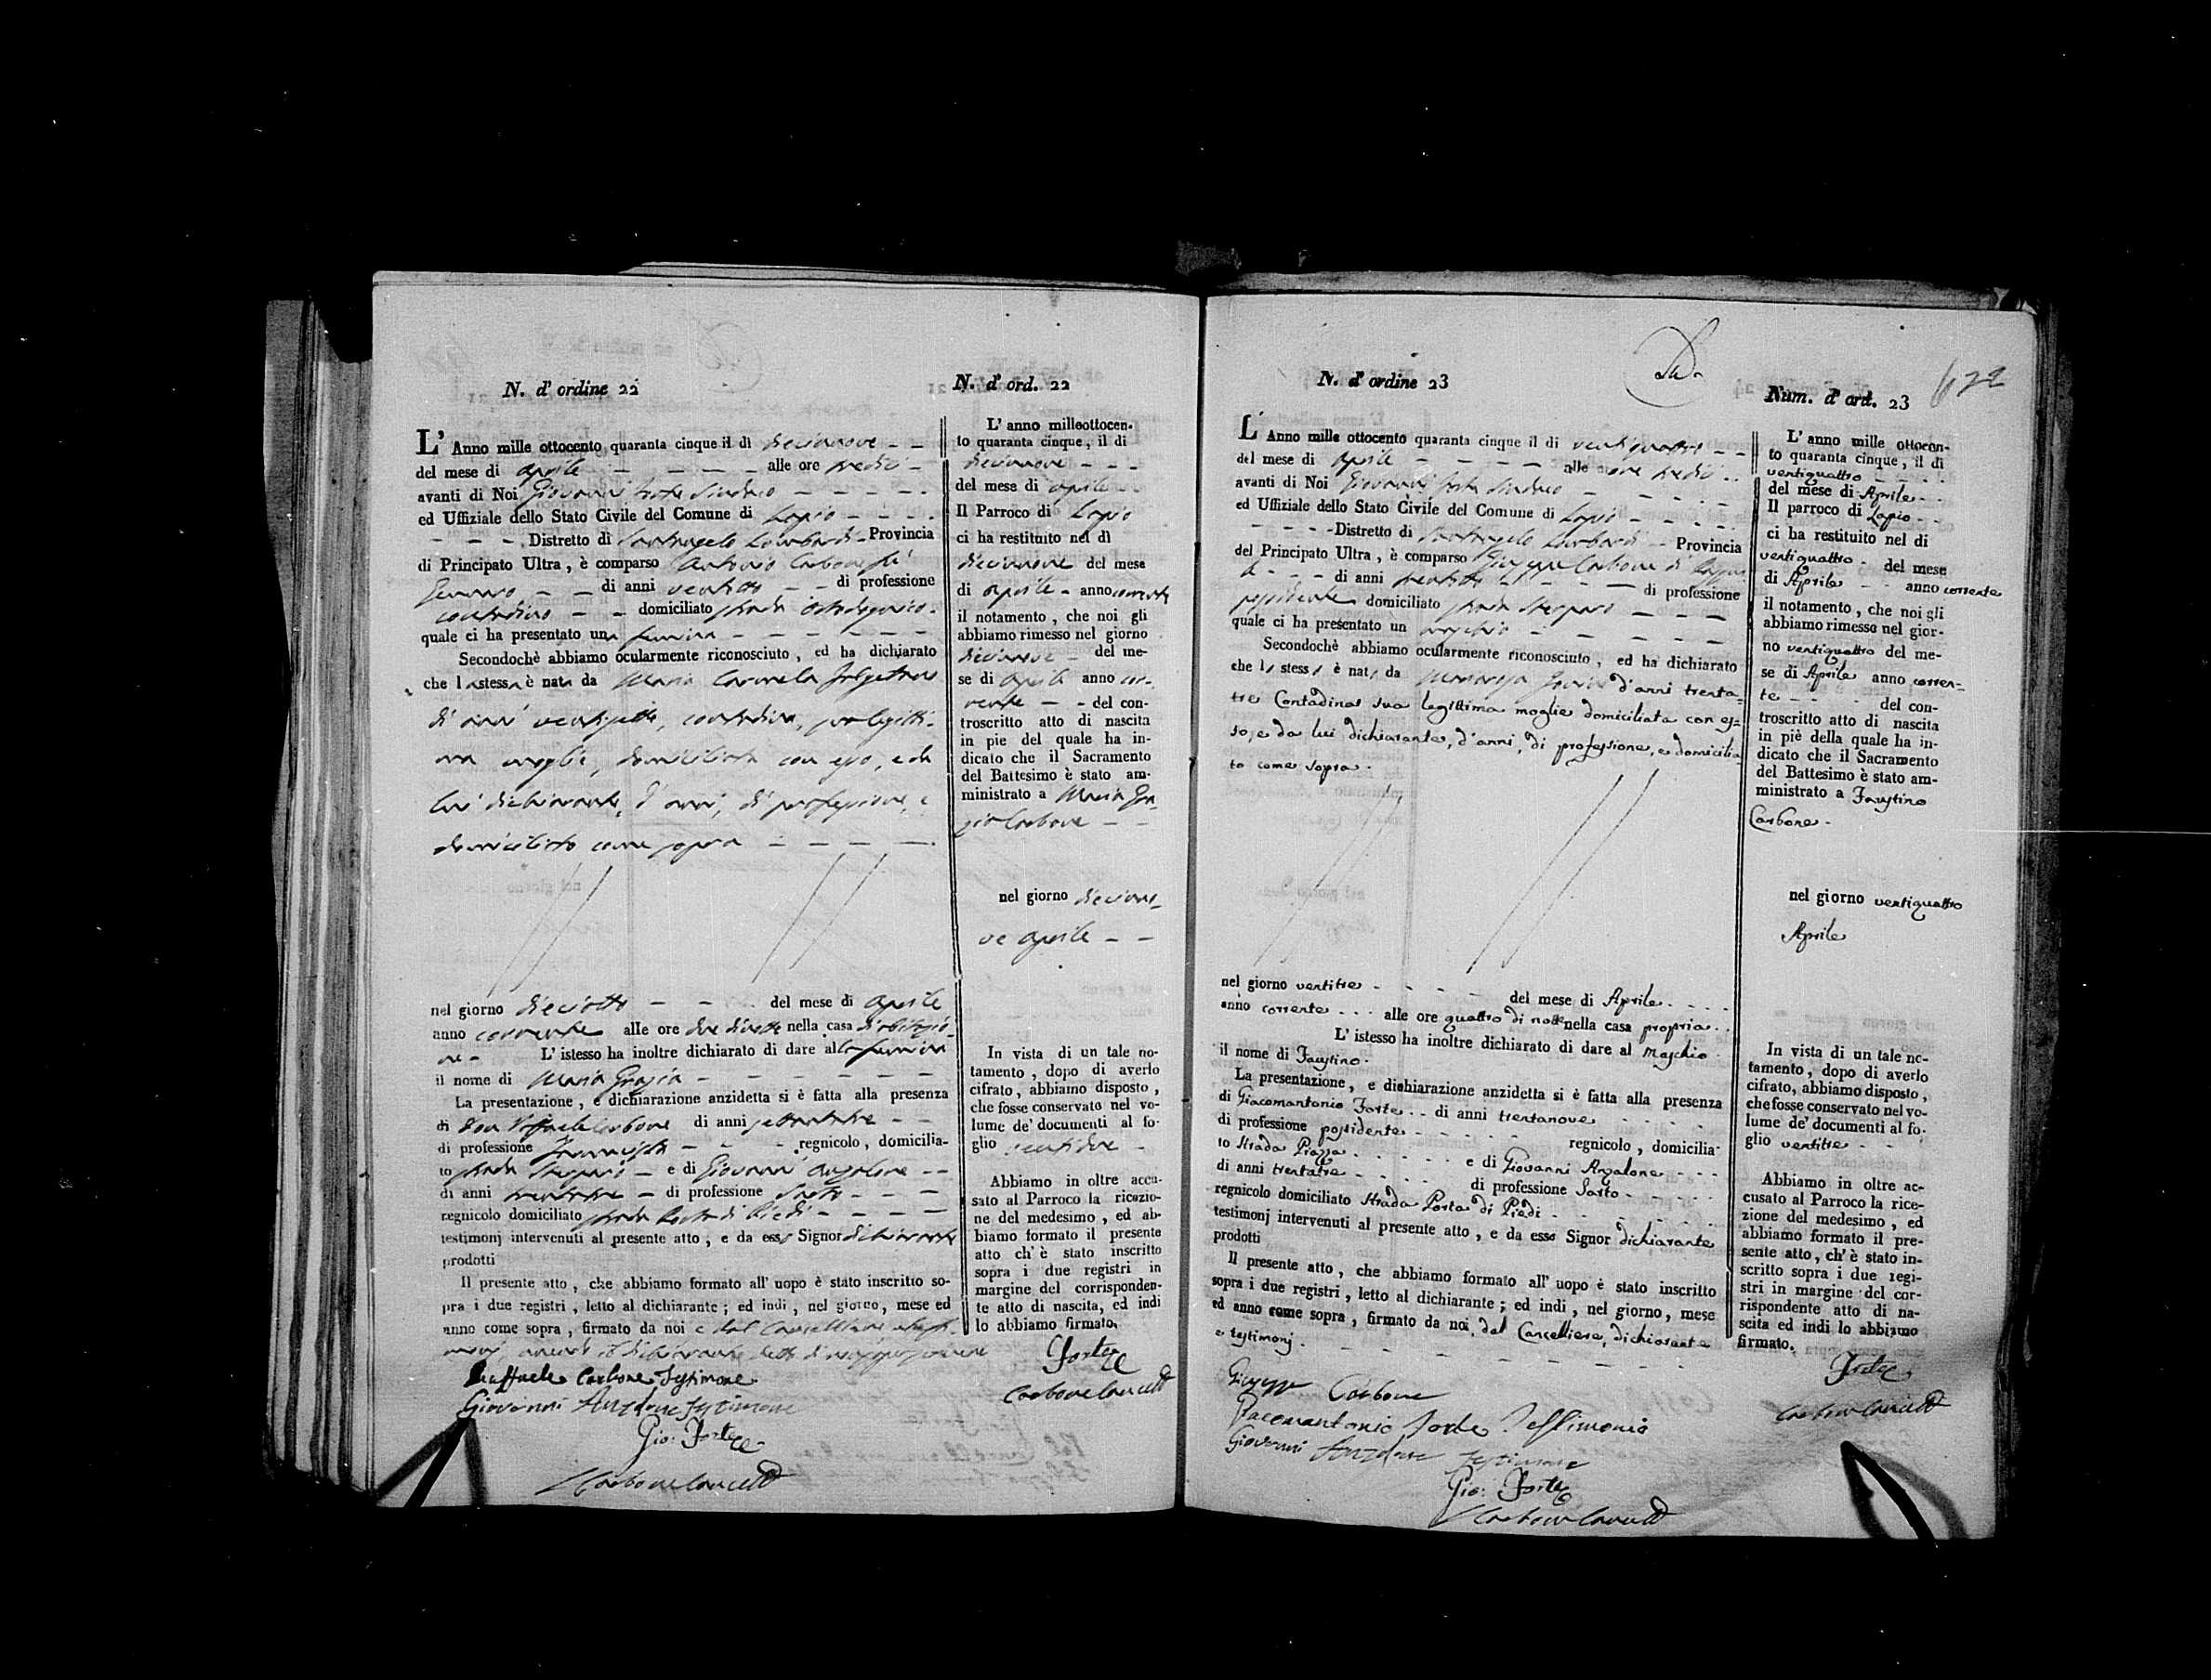 N. d' ordine 22
L' Anno mille ottocento quaranta cinque il dì diecinove
del mese di aprile alle ore tredici
avanti di Noi Giovanni Forte Sindaco
ed Uffiziale dello Stato Civile del Comune di Lapio
Distretto di Santangelo Lombardi Provincia
di Principato Ultra, è comparso Antonio Carbone fù
Gennaro di anni ventotto di professione
contadino domiciliato strada
quale ci ha presentato una femina
Secondochè abbiamo ocularmente riconosciuto, ed ha dichiarato
che la stessa è nata da Maria Carmela
di anni ventisette, contadina, sua legitti-
ma moglie, domiciliata con esso, e da
lui dichiarante, d'anni, di professione, e
domiciliato come sopra
nel giorno dieciotto del mese di aprile
anno corrente alle ore due di notte nella casa d'abitazio-
ne L' istesso ha inoltre dichiarato di dare alla femina
il nome di Maria Grazia
La presentazione, e dichiarazione anzidetta si è fatta alla presenza
di Don Raffaele Carbone di anni settantatre
di professione regnicolo, domicilia-
to strada e di Giovanni Anzalone
di anni trentatre di professione Sarto
regnicolo domiciliato strada Porta di Piedi
testimonj intervenuti al presente atto, e da esso Signor dichiarante
prodotti
Il presente atto, che abbiamo formato all' uopo è stato inscritto so-
pra i due registri, letto al dichiarante; ed indi, nel giorno, mese ed
anno come sopra, firmato da noi e dal Cancelliere e testi-
monj, avendo il dichiarante detto di non saper scrivere
Raffaele Carbone Testimone
Giovanni Anzalone testimone
Gio: Forte
Carbone Canc.
N. d' ord. 22
L' anno milleottocen-
to quaranta cinque, il di
diecinove
del mese di aprile
Il Parroco di Lapio
ci ha restituito nel dì
diecinove del mese
di aprile anno corrente
il notamento, che noi gli
abbiamo rimesso nel giorno
diecinove del me-
se di aprile anno cor-
rente del con-
troscritto atto di nascita
in pie del quale ha in-
dicato che il Sacramento
del Battesimo è stato am-
ministrato a Maria Gra-
zia Carbone
nel giorno diecino-
ve aprile
In vista di un tale no-
tamento, dopo di averlo
cifrato, abbiamo disposto,
che fosse conservato nel vo-
lume de' documenti al fo-
glio ventidue
Abbiamo in oltre accu-
sato al Parroco la ricezio-
ne del medesimo, ed ab-
biamo formato il presente
atto ch' è stato inscritto
sopra i due registri in
margine del corrisponden-
te atto di nascita, ed indi
lo abbiamo firmato.
Forte
Carbone Canc.
N. d' ordine 23
L' Anno mille ottocento quaranta cinque il di ventiquattro
del mese di aprile alle ore tredici
avanti di Noi Giovanni Forte Sindaco
ed Uffiziale dello Stato Civile del Comune di Lapio
Distretto di Santangelo Lombardi Provincia
del Principato Ultra, è comparso Giuseppe Carbone di
di anni trentotto di professione
possidente domiciliato strada
quale ci ha presentato un maschio
Secondochè abbiamo ocularmente riconosciuto, ed ha dichiarato
che lo stesso è nato da d'anni trenta-
tre Contadina sua legittima moglie domiciliata con es-
so, e da lui dichiarante, d'anni, di professione, e domicilia-
to come sopra.
nel giorno ventitre del mese di Aprile
anno corrente alle ore quattro di notte nella casa propria
L' istesso ha inoltre dichiarato di dare al Maschio
il nome di Faustino.
La presentazione, e dichiarazione anzidetta si è fatta alla presenza
di Giacomantonio Forte di anni trentanove
di professione possidente regnicolo, domicilia-
to strada Piazza e di Giovanni Anzalone
di anni trentatre di professione Sarto
regnicolo domiciliato strada Porta di Piedi
testimonj intervenuti al presente atto, e da esso Signor dichiarante
prodotti
Il presente atto, che abbiamo formato all' uopo è stato inscritto
sopra i due registri, letto al dichiarante; ed indi, nel giorno, mese
ed anno come sopra, firmato da noi, dal Cancelliere, dichiarante
e testimonj.
Giuseppe Carbone
Giacomantonio Forte Testimonio
Giovanni Anzalone testimone
Gio: Forte
Carbone Canc.
672
Num. d' ord. 23
L' anno mille ottocen-
to quaranta cinque, il di
ventiquattro
del mese di Aprile
Il parroco di Lapio
ci ha restituito nel di
ventiquattro del mese
di Aprile anno corrente
il notamento, che noi gli
abbiamo rimesso nel gior-
no ventiquattro del me-
se di Aprile anno corren-
te del con-
troscritto atto di nascita
in piè della quale ha in-
dicato che il Sacramento
del Battesimo è stato am-
ministrato a Faustino
Carbone.
nel giorno ventiquattro
Aprile
In vista di un tale no-
tamento, dopo di averlo
cifrato, abbiamo disposto,
che fosse conservato nel vo-
lume de' documenti al fo-
glio ventitre
Abbiamo in oltre ac-
cusato al Parroco la rice-
zione del medesimo, ed
abbiamo formato il pre-
sente atto, ch' è stato in-
scritto sopra i due regi-
stri in margine del cor-
rispondente atto di na-
scita ed indi lo abbiamo
firmato.
Forte
Carbone Canc.